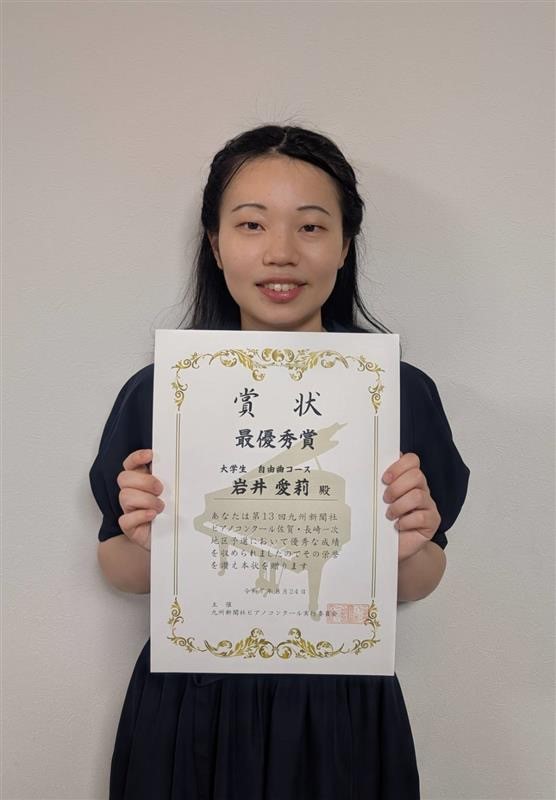 賞 状
最優秀賞
大学生 自由曲コース
岩井 愛莉 殿
あなたは第13回九州新聞社
ピアノコンクール佐賀・長崎一次
地区予選において優秀な成績
を収められましたのでその栄誉
を讃え本状を贈ります
令和7年8月24日
主 催
九州新聞社ピアノコンクール実行委員会